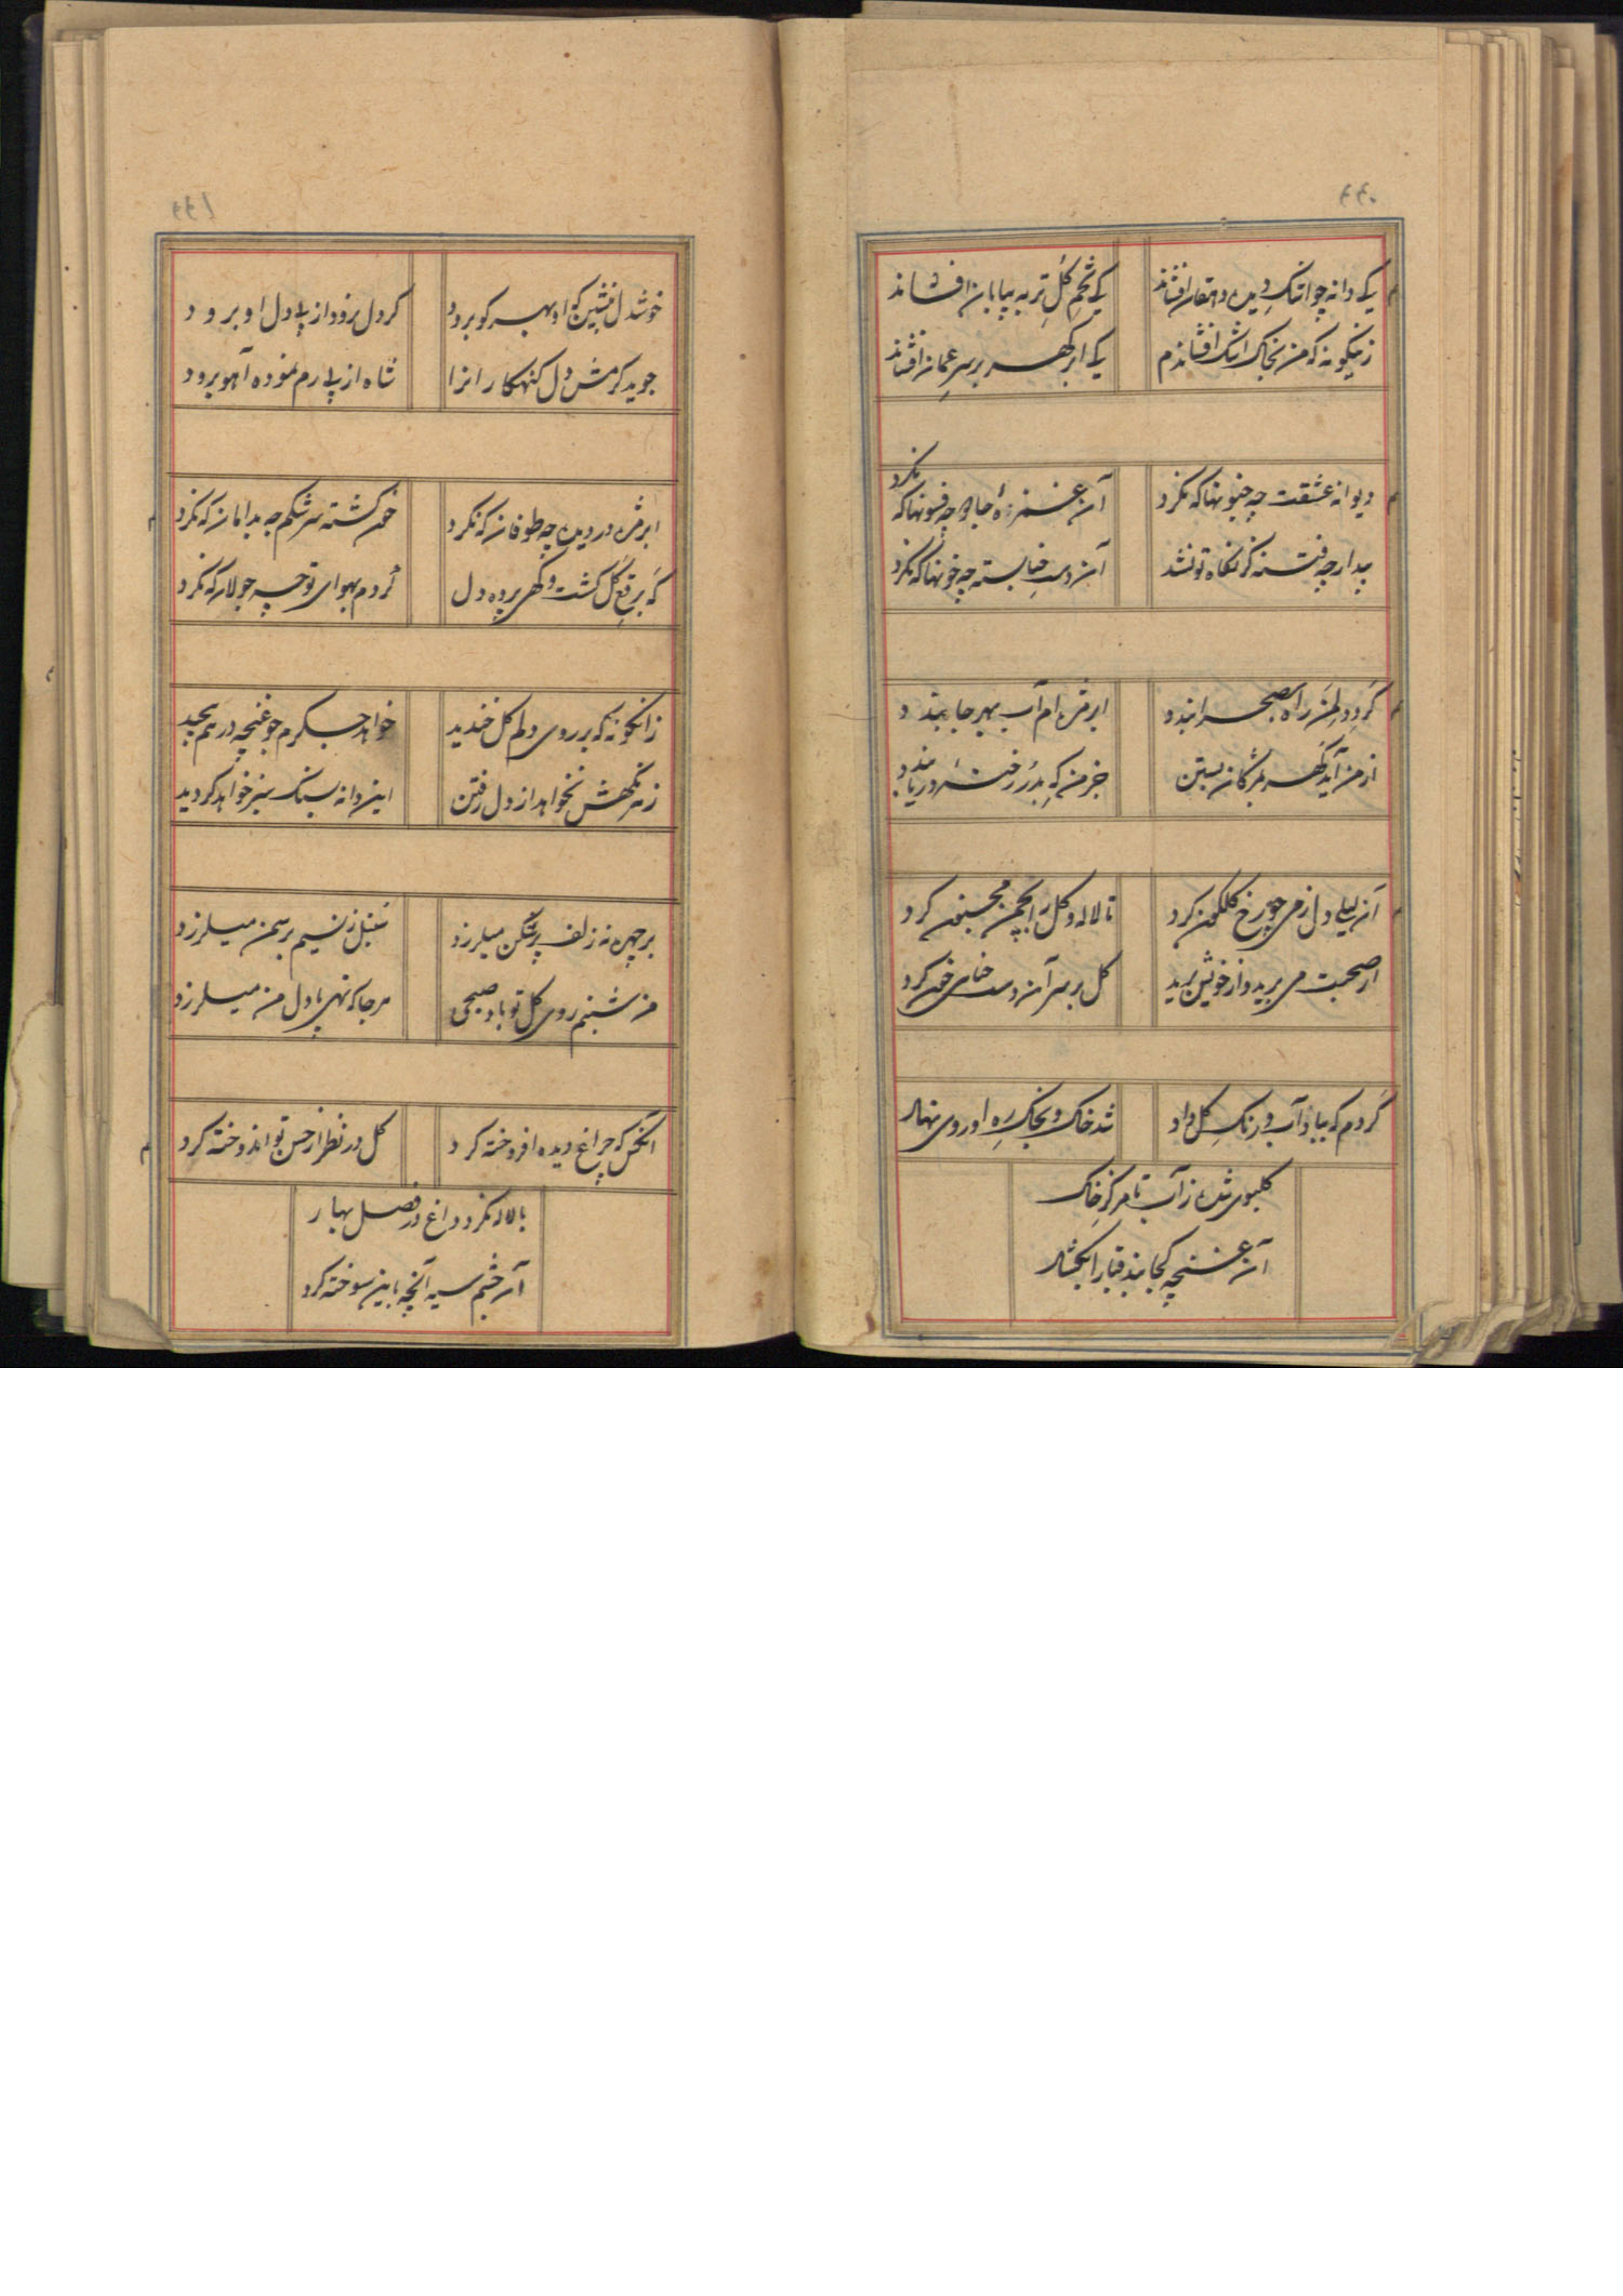 ۶۶۰
یک دانه چو اشک دیده دهقان نفشاند
یک تخم گل تر به بیابان نفشاند
زینگونه که من بخاک اشک افشاندم
یک ابر گهر بر سر عمان نفشاند
دیوانه عشقت چه جنونها که نکرد
آن غمزه جادو چه فسونها که نکرد
بیدار چه فتنه کز نگاه تو نشد
آن دست حنا بسته چه خونها که نکرد
گر دود دلم راه بصحرا بندد
ابر مژه‌ام آب بهر جا بندد
از من آید گهر بمژگان بستن
جز من که بدر رخنه دریا بندد
آن لیلی دل ز می چو رخ گلگون کرد
تا لاله و گل را بچمن مجنون کرد
از صحبت می برید و از خویش برید
گل بر سر آن دست حنایی خون کرد
گردم که بباد آب و رنگ گل داد
شد خاک و بخاک ره او روی نهاد
گلبوی شده ز آب تا مرکز خاک
آن غنچه کجا بند قبا را بگشاد
۶۶۱
خوشدل بنشین که او بهر کو برود
گر دل برود از پی دل او برود
جوید کرمش دل گنهکاران را
شاه از پی رم نموده آهو برود
ابر مژه در دیده چه طوفان که نکرد
خون گشته سرشکم چه بدامان که نکرد
که برقع گل گشت و گهی پرده دل
گردم بهوای تو چه جولان که نکرد
زانگونه که بر روی دلم گل خندید
خواهد جگرم چو غنچه در هم پیچید
زهر نگهش نخواهد از دل رفتن
این دانه بسنگ سبز خواهد گردید
بر چهره نه زلف پرشکن میلرزد
سنبل ز نسیم بر سمن میلرزد
من شبنم روی گل تو باد صبحی
هر جا که نهی پا دل من میلرزد
آنکس که چراغ دیده افروخته کرد
گل در نظر از حسن تو اندوخته کرد
با لاله نکرد داغ در فصل بهار
آن چشم سیه آنچه باین سوخته کرد